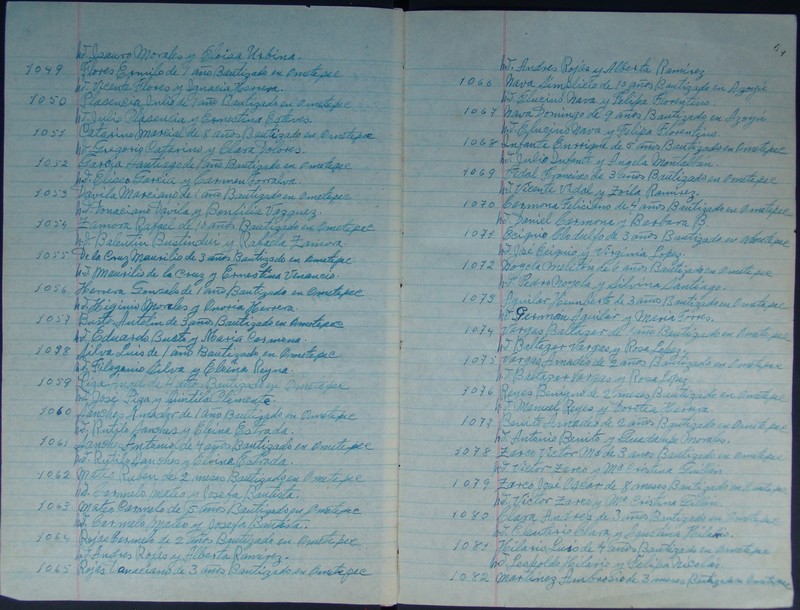 h/. Isauro Morales y Eloisa Urbina.
1049 Flores Ermilo de 1 año Bautizado en Ometepec
h/. Vicente Flores y Ignacia Herrera
1050 Plasencia Julio de 1 año Bautizado en Ometepec
h/. Julio Plasencia y Ernestina Esteves.
1051 Catarino Marcial de 8 años Bautizado en Ometepec
h/. Gregorio Catarino y Clara Dolores.
1052 Garcia Santiago de 1 año Bautizado en Ometepec
h/. Eliseo Garcia y Carmen Torralva.
1053 Davila Marciano de 1 año Bautizado en Ometepec
h/. Davila y Bonfilia Vazquez.
1054 Zamora Rafael de 10 años Bautizado en Ometepec
h/. Balentin y Rafaela Zamora
1055 De la Cruz Maurilio de 3 años Bautizado en Ometepec
h/. Maurilio de la Cruz y Ernestina Venancio.
1056 Herrera Gonzalo de 1 año Bautizado en Ometepec
h/. Higinio Morales y Onoria Herrera.
1057 Busto Antolin de 3 años Bautizado en Ometepec
h/. Eduardo Busto y Maria Carmona.
1058 Silva Luis de 1 año Bautizado en Ometepec
h/. Filogonio Silva y Elena Reyna.
1059 Piza de 4 años Bautizado en Ometepec
h/. Jose Piza y Clemente.
1060 Sanches Amador de 1 año Bautizado en Ometepec
h/. Rutilo Sanches y Elvira Estrada.
1061 Sanches Antonio de 4 años Bautizado en Ometepec
h/. Rutilo Sanches y Elvira Estrada.
1062 Mateo Ruben de 2 meses Bautizado en Ometepec
h/. Carmelo Mateo y Josefa Bautista.
1063 Mateo Carmelo de 5 años Bautizado en Ometepec
h/. Carmelo Mateo y Josefa Bautista.
1064 Rojas de 2 años Bautizado en Ometepec
h/. Andres Rojas y Alberta Ramirez.
1065 Rojas de 3 años Bautizado en Ometepec
h/. Andres Rojas y Alberta Ramirez
1066 Nava Simplicio de 10 años Bautizado en Azoyu
h/. Eleucino Nava y Felipa Florentino.
1067 Nava Domingo de 9 años Bautizado en Azoyu
h/. Eleucino Nava y Felipa Florentino.
1068 Infante Enrique de 5 años Bautizado en Ometepec
h/. Julio Infante y Angela Montalvan.
1069 Vidal Francisco de 3 años Bautizado en Ometepec
h/. Vicente Vidal y Zoila Ramirez.
1070 Carmona Feliciano de 4 años Bautizado en Ometepec
h/. Daniel Carmona y Barbara B.
1071 Clodulfo de 3 años Bautizado en Ometepec
h/. José y Virginia Lopez.
1072 de 6 años Bautizado en Ometepec
h/. Pedro y Silvina Santiago.
1073 Aguilar Humberto de 3 años Bautizado en Ometepec
h/. German Aguilar y Maria Torres.
1074 Vargas Baltazar de 1 año Bautizado en Ometepec
h/. Baltazar Vargas y Rosa Lopez.
1075 Vargas Amadeo de 2 años Bautizado en Ometepec
h/. Baltazar Vargas y Rosa Lopez
1076 Reyes Benigno de 2 meses Bautizado en Ometepec
h/. Manuel Reyes y Dorotea Herrera.
1077 Benito Amador de 2 años Bautizado en Ometepec
h/. Antonio Benito y Guadalupe Morales.
1078 Zarco Victor Ma de 3 años Bautizado en Ometepec
h/. Victor Zarco y Ma Cristina
1079 Zarco José Oscar de 8 meses Bautizado en Ometepec
h/. Victor Zarco y Ma Cristina
1080 Clara Andres de 3 años Bautizado en Ometepec
h/. Clara y Agustina Hilario.
1081 Hilario de 4 años Bautizado en Ometepec
h/. Leopoldo Hilario y Felipa Nicolas.
1082 Martinez Ambrosio de 3 meses Bautizado en Ometepec